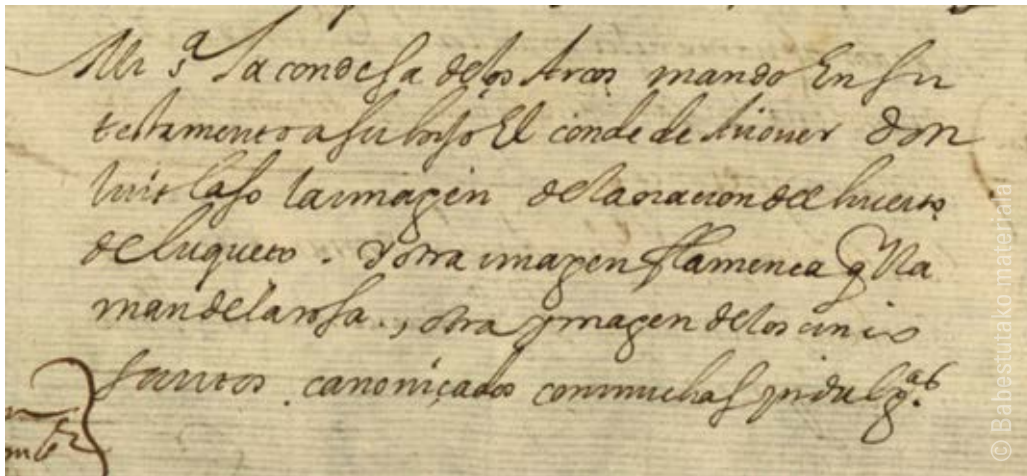 Mi sª la condesa delos Arcos mando En su
testamento a su hijo El conde de Añover don
luis laso la imagen dela oracion del huerto
de luqueto. Y otra imagen flamenca q lla
man dela rosa., otra ymagen delos cinco
santos canoniçados con muchas yndulgªs.
© Babestutako materiala